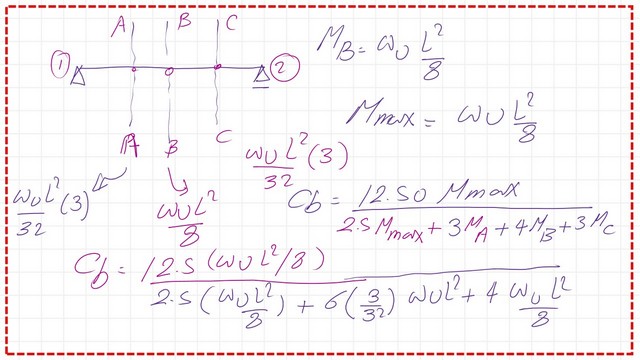 A B C
1 2
A B C
M_B = ω_U L²/8
M_max = ω_U L²/8
ω_U L²/32 (3)
ω_U L²/8
ω_U L²(3)/32
Cb = 12.50 M_max / 2.5 M_max + 3 M_A + 4 M_B + 3 M_C
Cb = 12.5 (ω_U L²/8) / 2.5 (ω_U L²/8) + 6 (3/32) ω_U L² + 4 ω_U L²/8